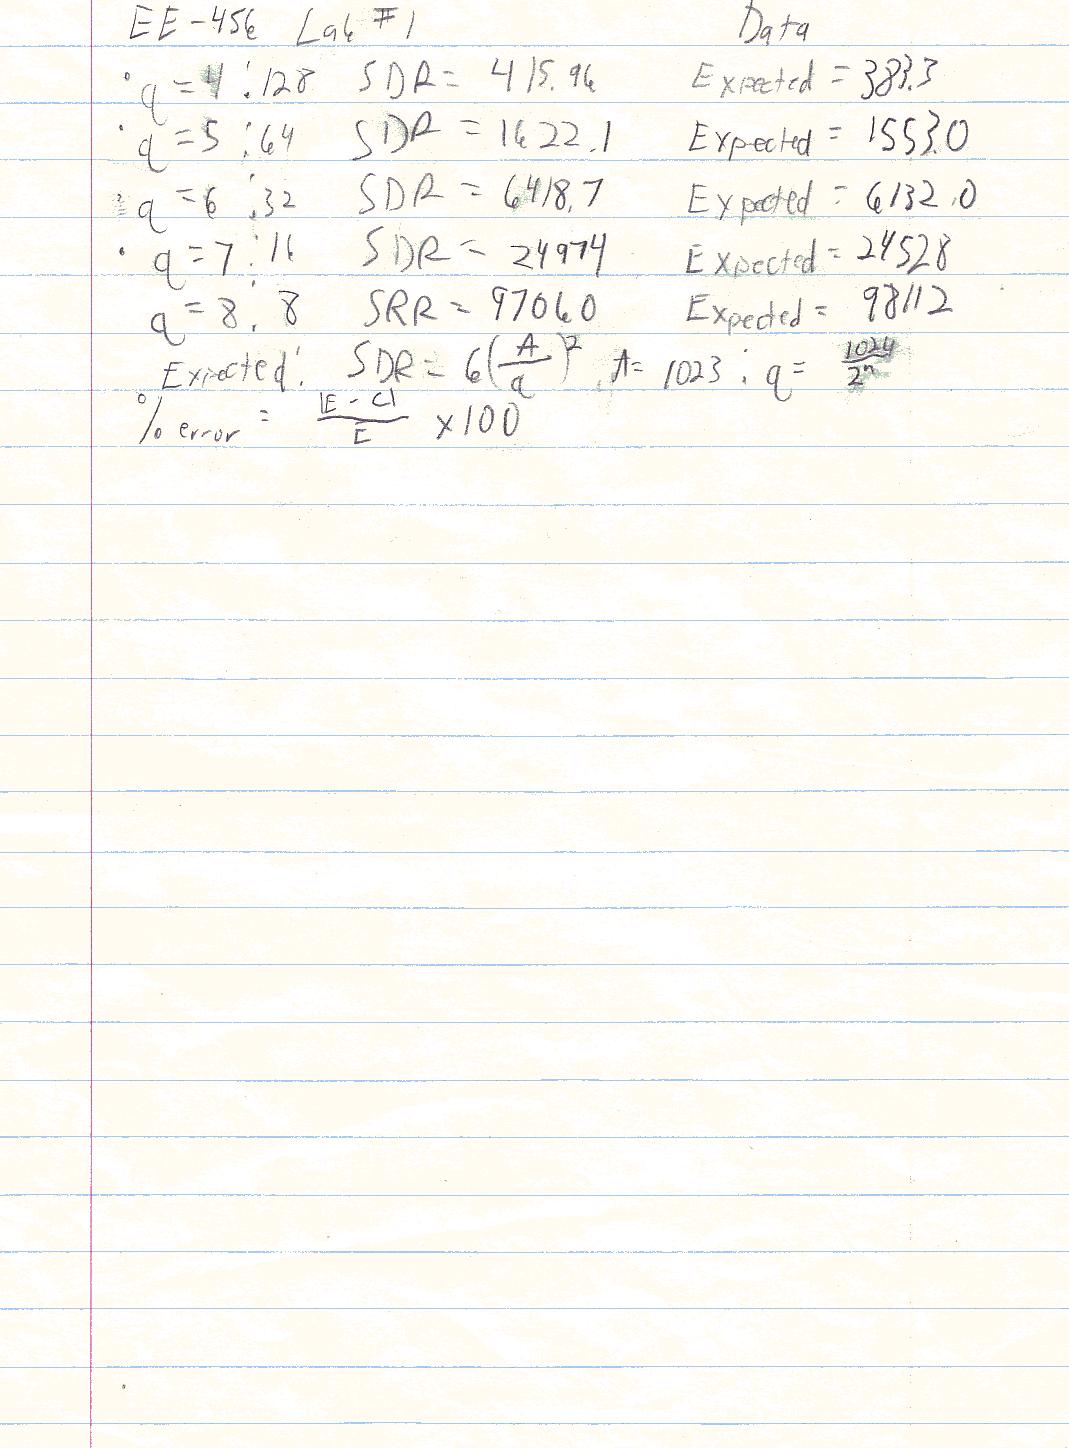 EE-456 Lab #1 Data
• q = 4 : 128 SDR = 415.96 Expected = 383.3
• q = 5 : 64 SDR = 1622.1 Expected = 1553.0
• q = 6 : 32 SDR = 6418.7 Expected = 6132.0
• q = 7 : 16 SDR = 24974 Expected = 24528
q = 8 : 8 SRR = 97060 Expected = 98112
Expected: SDR = 6(A/q)² , A = 1023 ; q = 1024/2ⁿ
% error = |E - C|/E x100